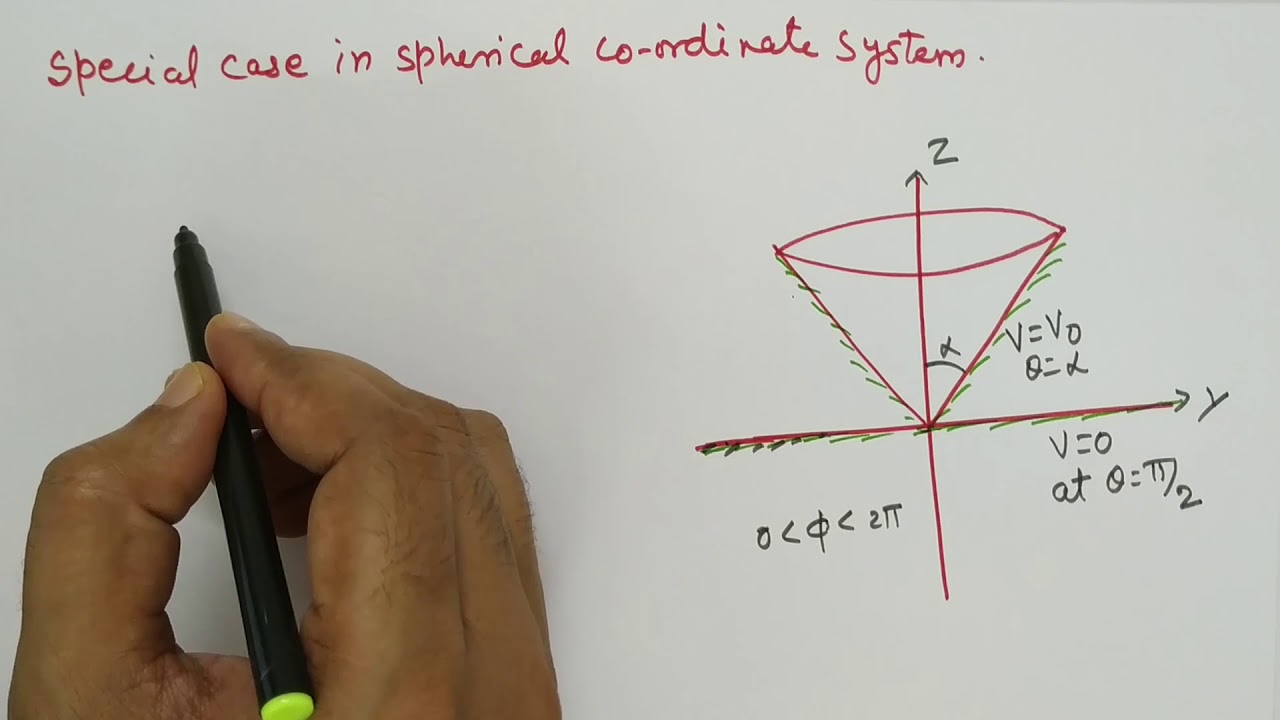 Special case in spherical co-ordinate system.
Z
α
V=V0
θ=α
Y
V=0
at θ=π/2
0<φ<2π